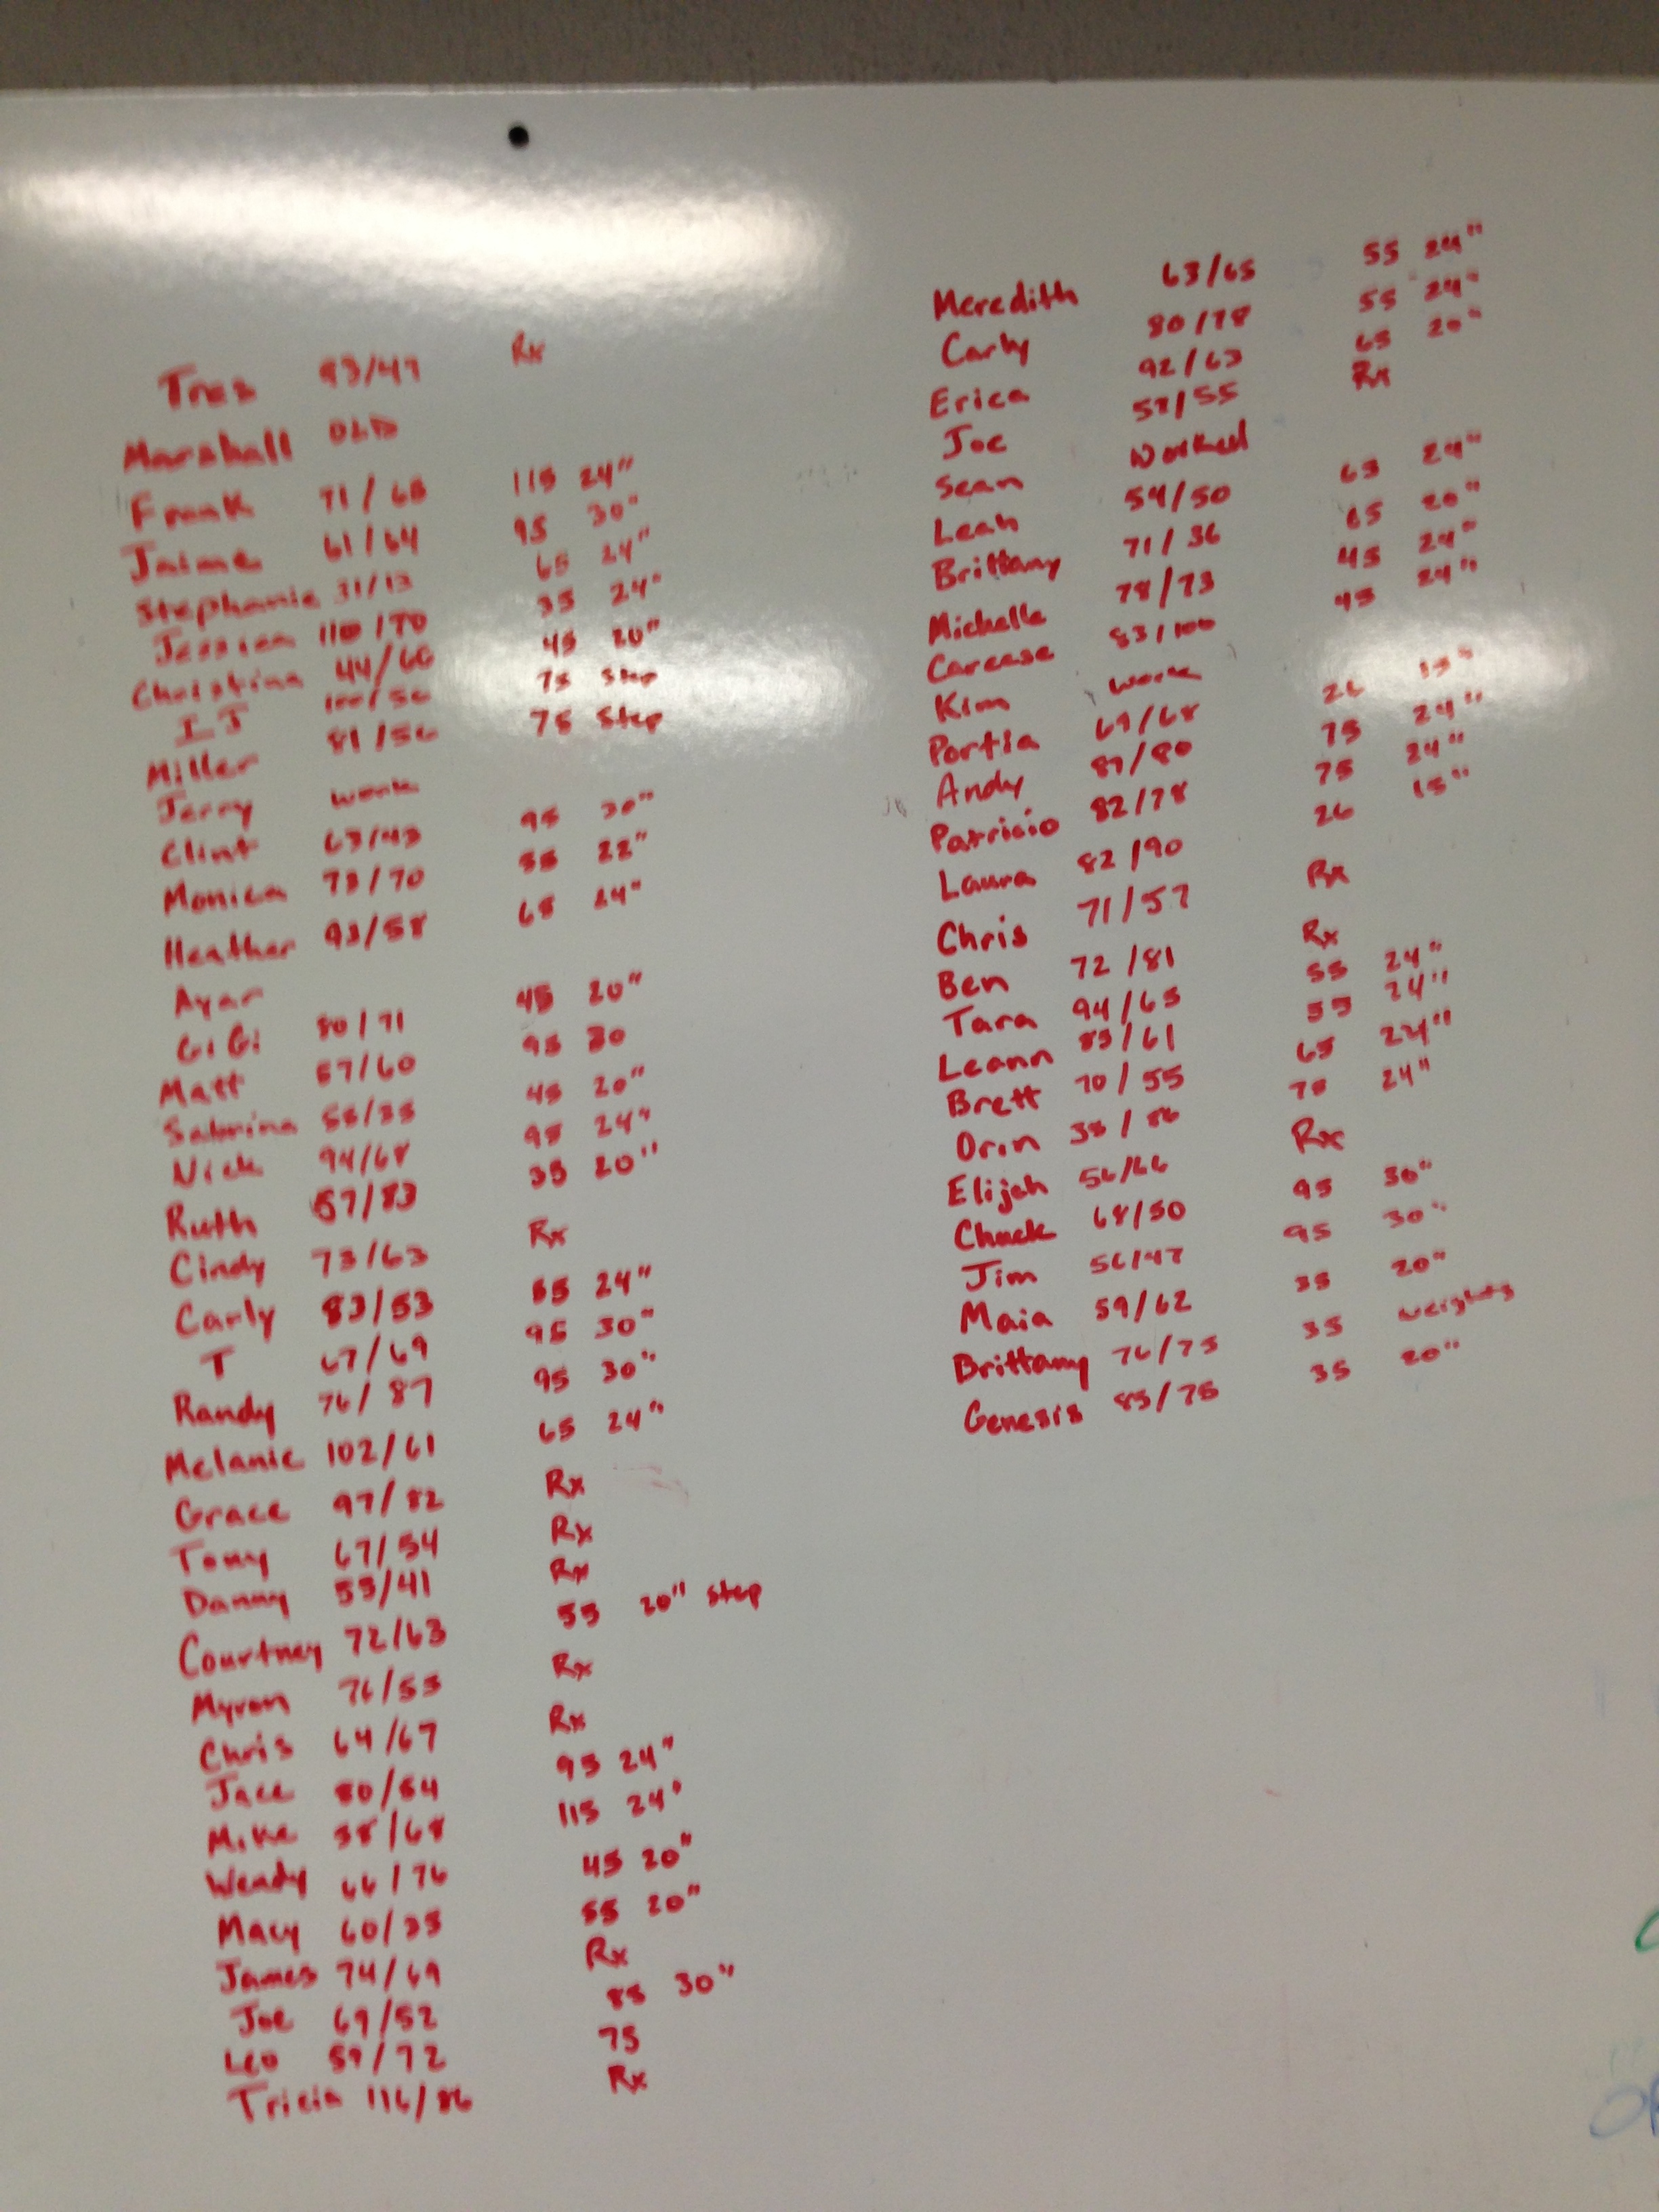 Tres 93/47 Rx
Marshall OLD
Frank 71/65 115 24"
Jaime 61/64 95 30"
Stephanie 31/13 65 24"
Jessica 110/70 35 24"
Christina 44/60 45 20"
IJ 100/50 75 Step
Miller 81/56 75 Step
Jerry work
Clint 63/43 95 30"
Monica 73/70 55 22"
Heather 93/58 65 24"
Ayar
GiGi 80/71 45 20"
Matt 57/60 95 30
Sabrina 55/35 45 20"
Nick 94/68 95 24"
Ruth 57/83 35 20"
Cindy 73/63 Rx
Carly 83/53 55 24"
T 67/69 95 30"
Randy 76/87 95 30"
Melanie 102/61 65 24"
Grace 97/82 Rx
Tony 67/54 Rx
Danny 55/41 Rx
Courtney 72/63 55 20" step
Myron 76/55 Rx
Chris 64/67 Rx
Jace 80/54 95 24"
Mike 58/68 115 24"
Wendy 66/76 45 20"
Macy 60/35 55 20"
James 74/69 Rx
Joe 69/52 85 30"
Leo 59/72 75
Tricia 116/86 Rx
Meredith 63/65 55 24"
Carly 80/78 55 24"
Erica 92/63 65 20"
Joe 57/55 Rx
Sean Worked
Leah 54/50 65 24"
Brittany 71/36 65 20"
Michelle 78/73 45 24"
Carease 83/100 45 24"
Kim work
Portia 69/68 26 15"
Andy 87/80 75 24"
Patricio 82/78 75 24"
Laura 82/90 26 15"
Chris 71/57 Rx
Ben 72/81 Rx
Tara 94/65 55 24"
Leann 85/61 55 24"
Brett 70/55 65 24"
Orin 38/86 75 24"
Elijah 56/66 Rx
Chuck 68/50 95 30"
Jim 56/47 95 30"
Maia 59/62 35 20"
Brittany 76/75 35 weights
Genesis 85/75 35 20"